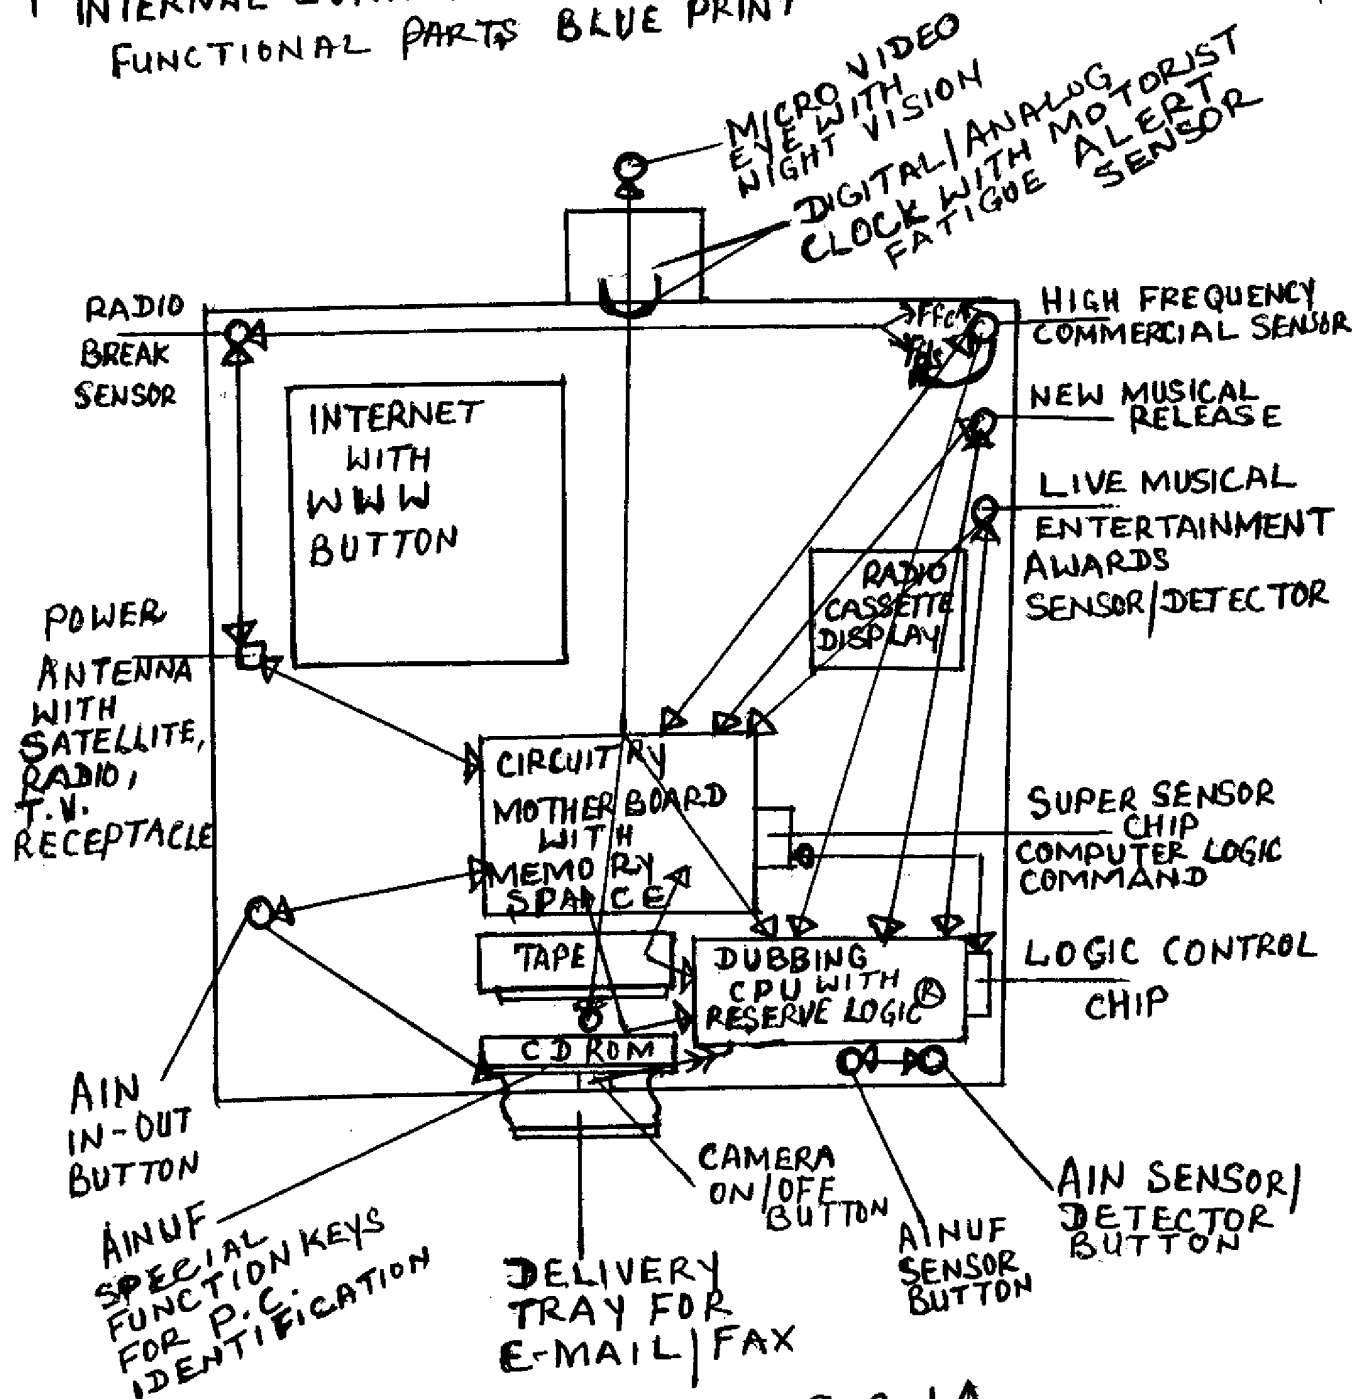 INTERNAL
FUNCTIONAL PARTS BLUE PRINT
MICRO VIDEO
EYE WITH
NIGHT VISION
DIGITAL/ANALOG
CLOCK WITH MOTORIST
FATIGUE ALERT
SENSOR
RADIO
BREAK
SENSOR
HIGH FREQUENCY
COMMERCIAL SENSOR
NEW MUSICAL
RELEASE
LIVE MUSICAL
ENTERTAINMENT
AWARDS
SENSOR/DETECTOR
INTERNET
WITH
WWW
BUTTON
RADIO
CASSETTE
DISPLAY
POWER
ANTENNA
WITH
SATELLITE,
RADIO,
T.V.
RECEPTACLE
CIRCUITRY
MOTHER BOARD
WITH
MEMORY
SPACE
SUPER SENSOR
CHIP
COMPUTER LOGIC
COMMAND
TAPE
DUBBING
CPU WITH
RESERVE LOGIC ®
LOGIC CONTROL
CHIP
CD ROM
AIN
IN-OUT
BUTTON
AINUF
SPECIAL
FUNCTION KEYS
FOR P.C.
IDENTIFICATION
CAMERA
ON/OFF
BUTTON
DELIVERY
TRAY FOR
E-MAIL/FAX
AINUF
SENSOR
BUTTON
AIN SENSOR/
DETECTOR
BUTTON